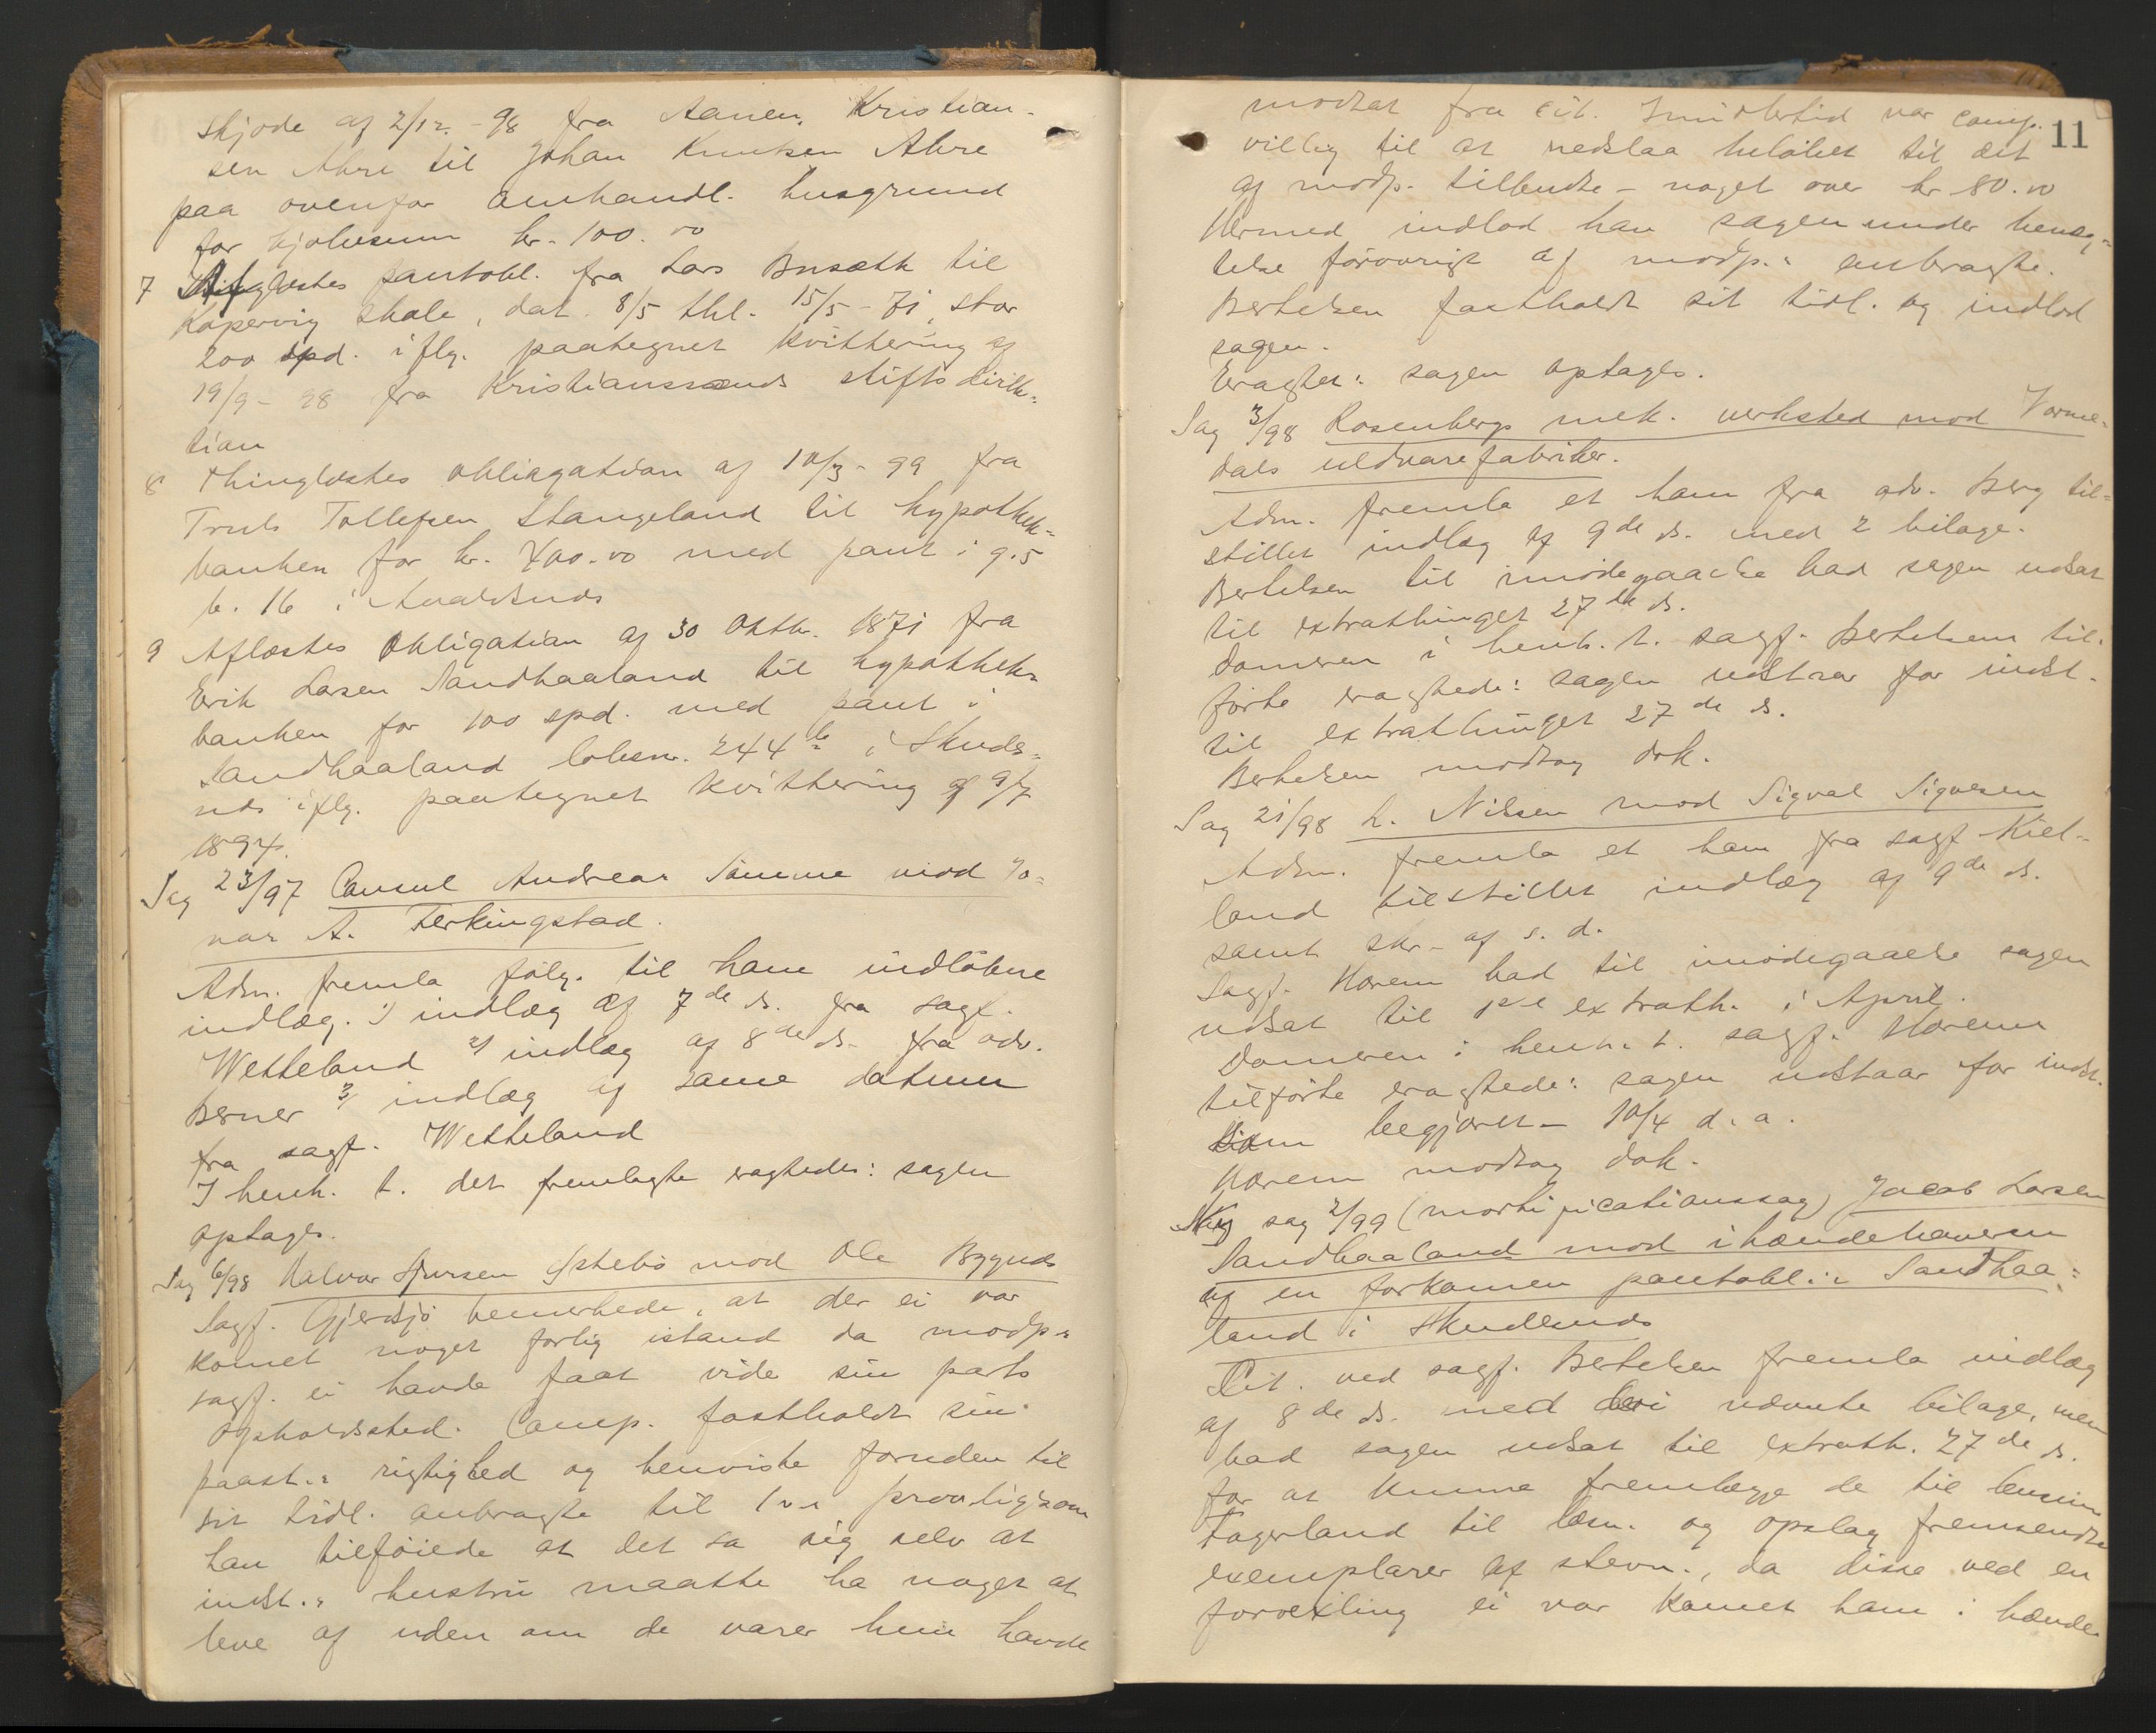 Skjøde af 2/12.-98 fra Aanen Kristian-
sen Ahre til Johan Knutsen Ahre
paa ovenfor omhandl. husgrund
for kjøbesum kr. 100.00
7 Aflæstes pantobl. fra Lars Busæth til
Kopervig Skole, dat. 8/5 thl. 15/5-71, stor
200 spd. iflg. paategnet kvittering af
19/9-98 fra Kristianssands stiftsdirek=
tion
8 Thinglæstes obligation af 10/3-99 fra
Truls Tollefsen Stangeland til hypothek=
banken for kr. 400.00 med pant i g. 5
b. 16 i Avaldsnds
9 Aflæstes Obligation af 30 Oktbr. 1871 fra
Erik Larsen Sandhaaland til hypothek=
banken for 100 spd. med pant i
Sandhaaland løbenr. 244 b i Skuds=
nds iflg. paategnet kvittering af 9/7
1894.
Sag 23/97 Consul Andreas Sømme mod Jo=
nas A. Ferkingstad.
Adm. fremla følg. til ham indløbne
indlæg. 1/ indlæg af 7de ds. fra sagf.
Wetteland 2/ indlæg af 8de ds. fra adv.
Berner 3/ indlæg af same datum
fra sagf. Wetteland
I henh. t. det fremlagte eragtedes: sagen
optages.
Sag 6/98 Halvor Sjursen Østebø mod Ole Bygnds
Sagf. Gjerdsjø bemerkede, at der ei var
komet noget forlig istand da modp.s
sagf. ei havde faat vide sin parts
opholdssted. Comp. fastholdt sin
paast.s rigtighed og henviste foruden til
sit tidl. anbragte til
han tilføiede at det sa sig selv at
indst.s hustru maatte ha noget at
leve af uden om de varer hun havde
11
modtat fra cit. Imidlertid var comp.
villig til at nedslaa beløbet til det
af modp. tilbudte - noget over kr 80.00
Hermed indlod han sagen under benæg=
telse forøvrigt af modp.s anbragte.
Bertelsen fastholdt sit tidl. og indlod
sagen.
Eragtet: sagen optages.
Sag 3/98 Rosenbergs mek. verksted mod Vorme=
dals uldvarefabriker.
Adm. fremla et ham fra adv. Berg til=
stillet indlæg af 9de ds. med 2 bilage.
Bertelsen til imødegaaelse bad sagen udsat
til extrathinget 27de ds.
Domeren i henh. t. sagf. Bertelsens til=
førte eragtede: sagen udstaar for indst.
til extrathinget 27de ds.
Bertelsen modtog dok.
Sag 21/98 L. Nilsen mod Sigval Sigvesen
Adm. fremla et ham fra sagf. Kiel=
land tilstillet indlæg af 9de ds.
samt skr. af s. d.
Sagf. Horem bad til imødegaaelse sagen
udsat til 1ste extrath. i April.
Domeren i henh. t. sagf. Horems
tilførte eragtede: sagen udstaar for indst.
som begjæret - 10/4 d. a.
Horem modtog dok.
Ny sag 2/99 (mortificationssag) Jacob Larsen
Sandhaaland mod ihændehaveren
af en forkomen pantobl. i Sandhaa=
land i Skudesnds
Cit. ved sagf. Bertelsen fremla indlæg
af 8de ds. med deri nævnte bilage, men
bad sagen udsat til extrath. 27de ds.
for at kunne fremlægge de til lensm.
Fagerland til læsn. og opslag fremsendte
exemplarer af stevn., da disse ved en
forvexling ei var komet ham i hænde